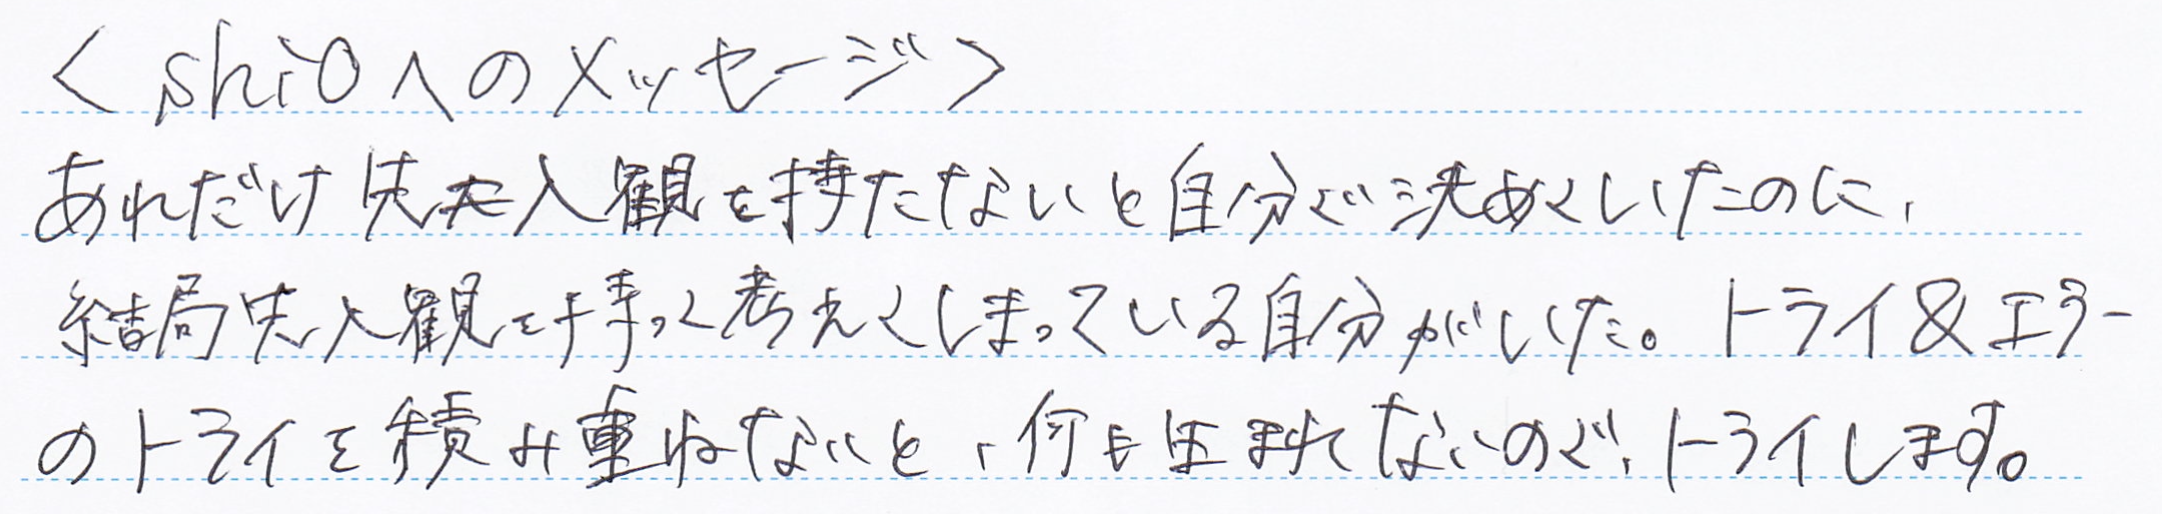 <shioへのメッセージ>
あれだけ先入観を持たないと自分で決めていたのに、
結局先入観を持って考えてしまっている自分がいた。トライ&エラー
のトライを積み重ねないと、何も生まれないので、トライします。